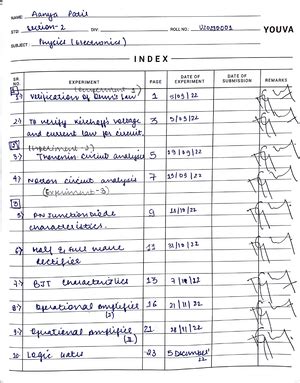 NAME: Aanya Patil
STD: Section-2 DIV: ROLL NO.: YOUVA
SUBJECT: Physics (Electronics)
INDEX
SR NO. EXPERIMENT PAGE DATE OF EXPERIMENT DATE OF SUBMISSION REMARKS
(Experiment 1)
1> Verification of Ohm's Law 1 5/09/22
2> To verify Kirchoff's voltage 3 5/09/22
and current law for circuit.
(Experiment 2)
3> Thevenin's circuit analysis 5 /09/22
4> Norton circuit analysis 7 /09/22
(Experiment-3)
5> PN Junction Diode 9 /10/22
characteristics.
6> Half & Full wave 11 31/10/22
Rectifier
7> BJT Characteristics 13 7/11/22
8> Operational Amplifier 16 21/11/22
(I)
9> Operational Amplifier 21 28/11/22
(II)
10. Logic Gates 23 5 December' 22